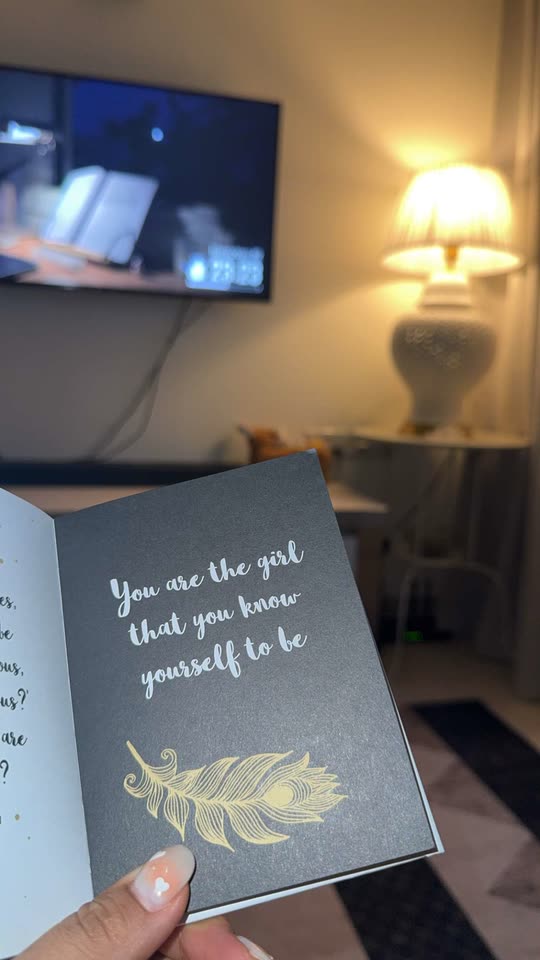 be
us?'
are
?
You are the girl
that you know
yourself to be